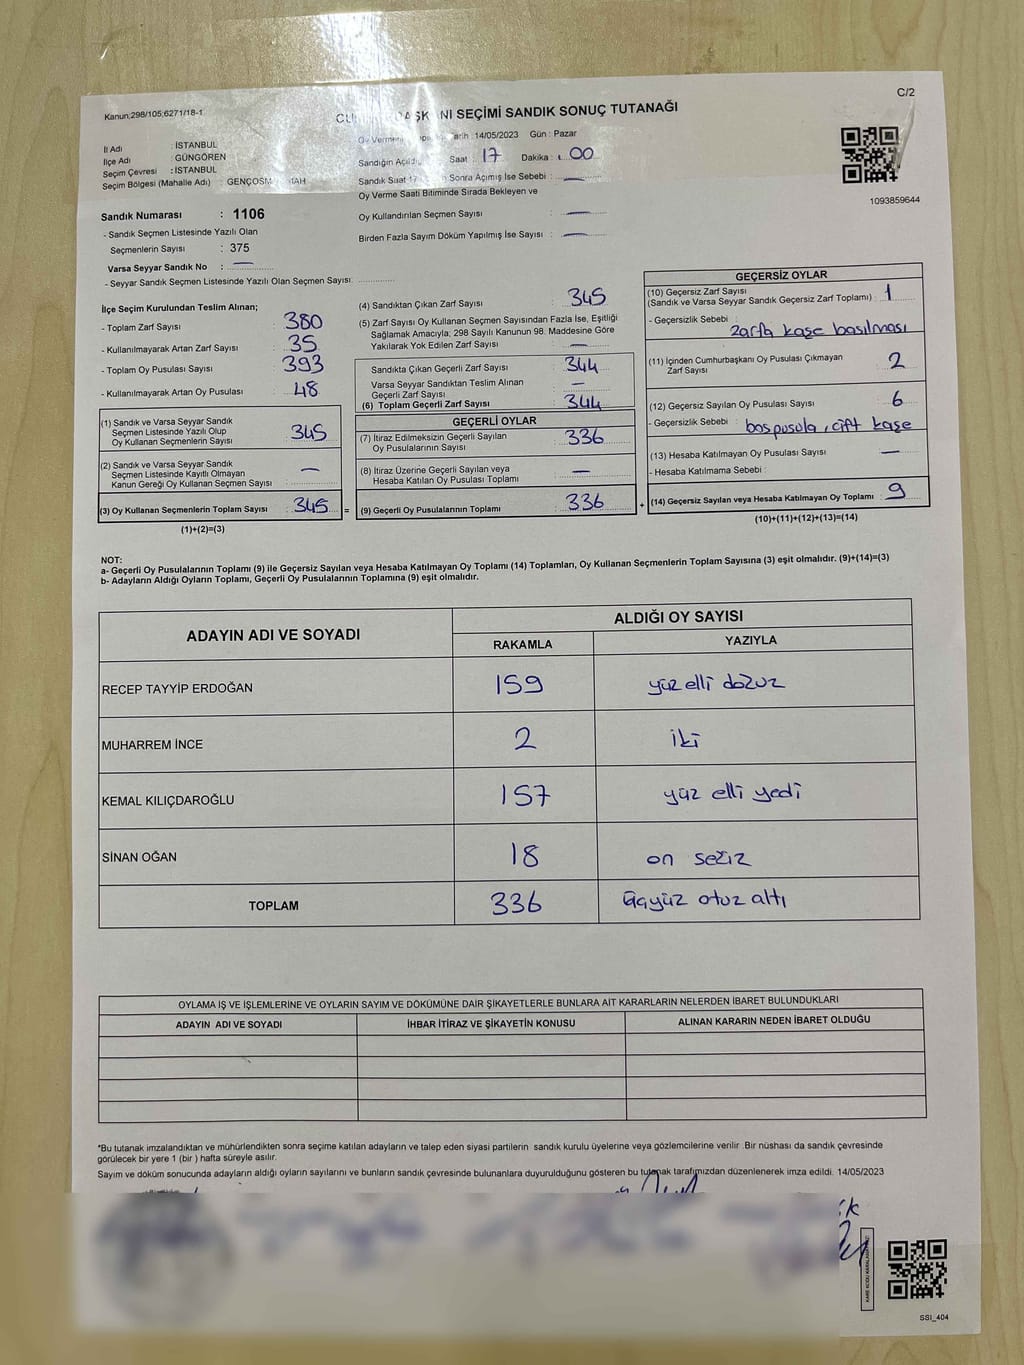 Kanun;298/105;6271/18-1
C/2
SEÇİMİ SANDIK SONUÇ TUTANAĞI
İl Adı : İSTANBUL
İlçe Adı : GÜNGÖREN
Seçim Çevresi : İSTANBUL
Seçim Bölgesi (Mahalle Adı) :
14/05/2023 Gün : Pazar
Sandığın Saat : 17 Dakika : 00
Sandık Saat Sonra Açımış İse Sebebi : —
Oy Verme Saati Bitiminde Sırada Bekleyen ve
Oy Kullandırılan Seçmen Sayısı : —
Birden Fazla Sayım Döküm Yapılmış İse Sayısı : —
1093859644
Sandık Numarası : 1106
- Sandık Seçmen Listesinde Yazılı Olan
Seçmenlerin Sayısı : 375
Varsa Seyyar Sandık No : —
- Seyyar Sandık Seçmen Listesinde Yazılı Olan Seçmen Sayısı:
İlçe Seçim Kurulundan Teslim Alınan;
- Toplam Zarf Sayısı : 380
- Kullanılmayarak Artan Zarf Sayısı : 35
- Toplam Oy Pusulası Sayısı : 393
- Kullanılmayarak Artan Oy Pusulası : 48
(1) Sandık ve Varsa Seyyar Sandık
Seçmen Listesinde Yazılı Olup
Oy Kullanan Seçmenlerin Sayısı : 345
(2) Sandık ve Varsa Seyyar Sandık
Seçmen Listesinde Kayıtlı Olmayan
Kanun Gereği Oy Kullanan Seçmen Sayısı : —
(3) Oy Kullanan Seçmenlerin Toplam Sayısı : 345 =
(1)+(2)=(3)
(4) Sandıktan Çıkan Zarf Sayısı : 345
(5) Zarf Sayısı Oy Kullanan Seçmen Sayısından Fazla İse, Eşitliği
Sağlamak Amacıyla, 298 Sayılı Kanunun 98. Maddesine Göre
Yakılarak Yok Edilen Zarf Sayısı : —
Sandıkta Çıkan Geçerli Zarf Sayısı : 344
Varsa Seyyar Sandıktan Teslim Alınan
Geçerli Zarf Sayısı : —
(6) Toplam Geçerli Zarf Sayısı : 344
GEÇERLİ OYLAR
(7) İtiraz Edilmeksizin Geçerli Sayılan
Oy Pusulalarının Sayısı : 336
(8) İtiraz Üzerine Geçerli Sayılan veya
Hesaba Katılan Oy Pusulası Toplamı : —
(9) Geçerli Oy Pusulalarının Toplamı : 336 +
GEÇERSİZ OYLAR
(10) Geçersiz Zarf Sayısı
(Sandık ve Varsa Seyyar Sandık Geçersiz Zarf Toplamı) : 1
- Geçersizlik Sebebi : zarfa kaşe basılması
(11) İçinden Cumhurbaşkanı Oy Pusulası Çıkmayan
Zarf Sayısı : 2
(12) Geçersiz Sayılan Oy Pusulası Sayısı : 6
- Geçersizlik Sebebi : boş pusula, çift kaşe
(13) Hesaba Katılmayan Oy Pusulası Sayısı : —
- Hesaba Katılmama Sebebi :
(14) Geçersiz Sayılan veya Hesaba Katılmayan Oy Toplamı : 9
(10)+(11)+(12)+(13)=(14)
NOT:
a- Geçerli Oy Pusulalarının Toplamı (9) ile Geçersiz Sayılan veya Hesaba Katılmayan Oy Toplamı (14) Toplamları, Oy Kullanan Seçmenlerin Toplam Sayısına (3) eşit olmalıdır. (9)+(14)=(3)
b- Adayların Aldığı Oyların Toplamı, Geçerli Oy Pusulalarının Toplamına (9) eşit olmalıdır.
ADAYIN ADI VE SOYADI ALDIĞI OY SAYISI
RAKAMLA YAZIYLA
RECEP TAYYİP ERDOĞAN 159 yüz elli dokuz
MUHARREM İNCE 2 iki
KEMAL KILIÇDAROĞLU 157 yüz elli yedi
SİNAN OĞAN 18 on sekiz
TOPLAM 336 üçyüz otuz altı
OYLAMA İŞ VE İŞLEMLERİNE VE OYLARIN SAYIM VE DÖKÜMÜNE DAİR ŞİKAYETLERLE BUNLARA AİT KARARLARIN NELERDEN İBARET BULUNDUKLARI
ADAYIN ADI VE SOYADI İHBAR İTİRAZ VE ŞİKAYETİN KONUSU ALINAN KARARIN NEDEN İBARET OLDUĞU
*Bu tutanak imzalandıktan ve mühürlendikten sonra seçime katılan adayların ve talep eden siyasi partilerin sandık kurulu üyelerine veya gözlemcilerine verilir .Bir nüshası da sandık çevresinde
görülecek bir yere 1 (bir ) hafta süreyle asılır.
Sayım ve döküm sonucunda adayların aldığı oyların sayılarını ve bunların sandık çevresinde bulunanlara duyurulduğunu gösteren bu tutanak tarafımızdan düzenlenerek imza edildi. 14/05/2023
SSI_404